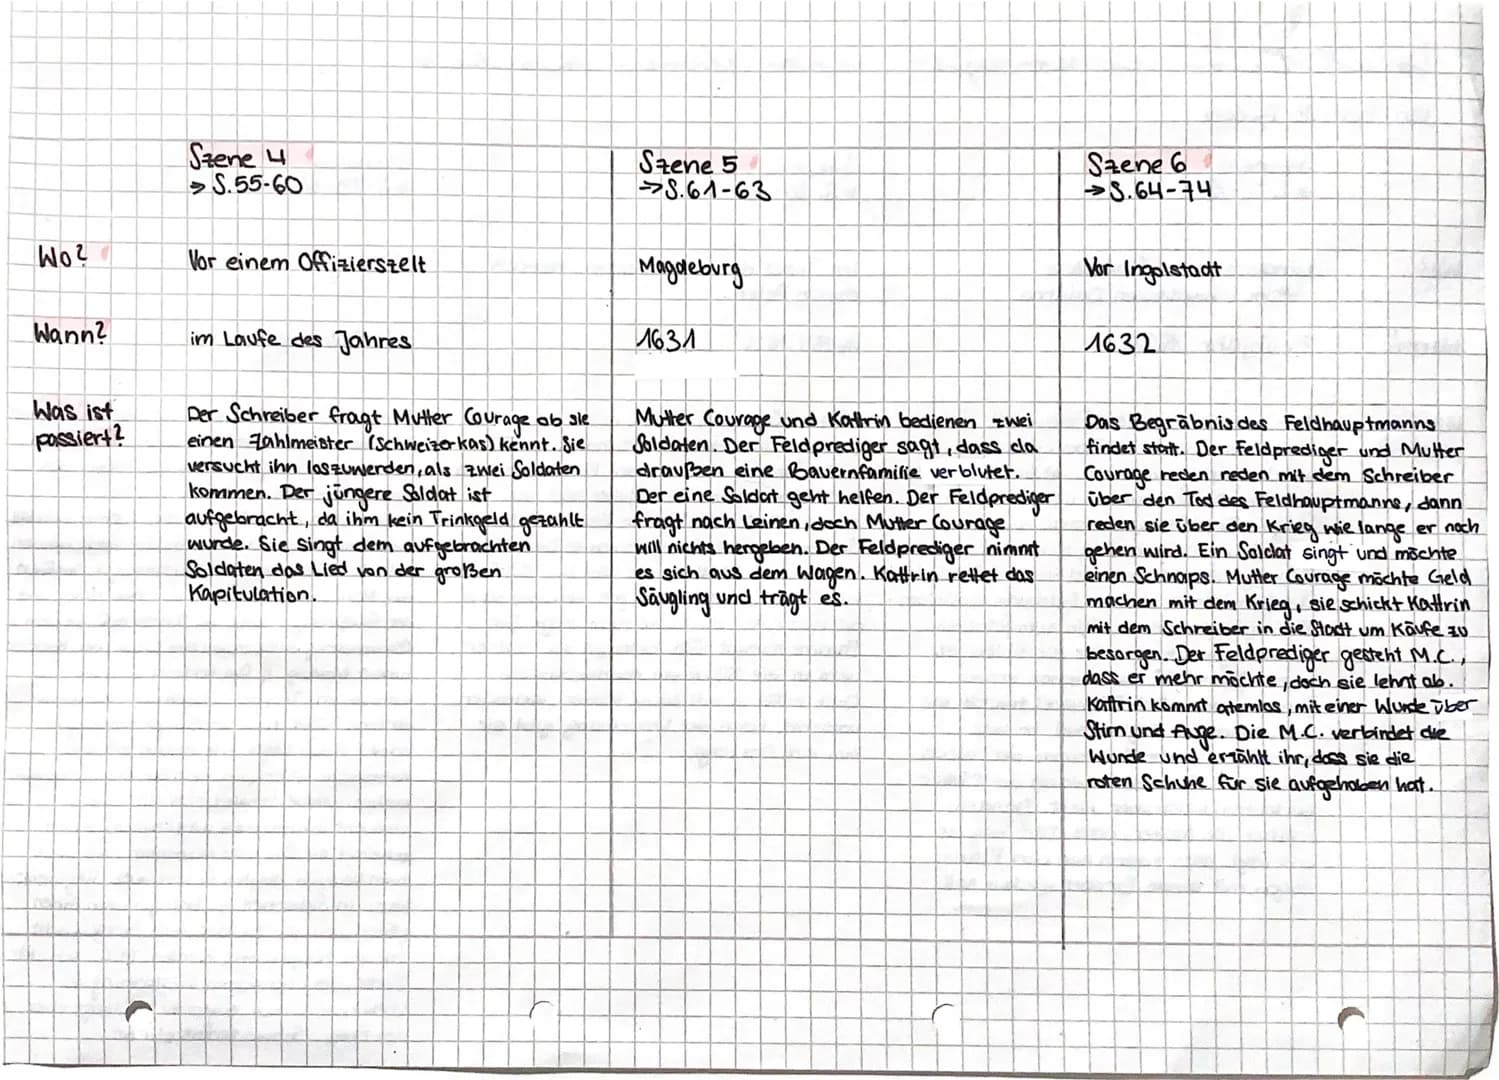 Szene 4
→ S.55-60
Szene 5
→ S.61-63
Szene 6
→ S.64-74
Wo?
Vor einem Offizierszelt
Magdeburg
Vor Ingolstadt
Wann?
im Laufe des Jahres
1631
1632
Was ist
passiert?
Der Schreiber fragt Mutter Courage ob sie
einen Zahlmeister (Schweizerkas) kennt. Sie
versucht ihn loszuwerden, als zwei Soldaten
kommen. Der jüngere Soldat ist
aufgebracht, da ihm kein Trinkgeld gezahlt
wurde. Sie singt dem aufgebrachten
Soldaten das Lied von der großen
Kapitulation.
Mutter Courage und Kattrin bedienen zwei
Soldaten. Der Feldprediger sagt, dass da
draußen eine Bauernfamilie verblutet.
Der eine Soldat geht helfen. Der Feldprediger
fragt nach Leinen, doch Mutter Courage
will nichts hergeben. Der Feldprediger nimmt
es sich aus dem Wagen. Kattrin rettet das
Säugling und trägt es.
Das Begräbnis des Feldhauptmanns
findet statt. Der Feldprediger und Mutter
Courage reden reden mit dem Schreiber
über den Tod des Feldhauptmanns, dann
reden sie über den Krieg wie lange er noch
gehen wird. Ein Soldat singt und möchte
einen Schnaps. Mutter Courage möchte Geld
machen mit dem Krieg, sie schickt Kattrin
mit dem Schreiber in die Stadt um Käufe zu
besorgen. Der Feldprediger gesteht M.C.,
dass er mehr möchte, doch sie lehnt ab.
Kattrin kommt atemlos, mit einer Wunde über
Stirn und Auge. Die M.C. verbindet die
Wunde und erzählt ihr, dass sie die
roten Schuhe für sie aufgehoben hat.